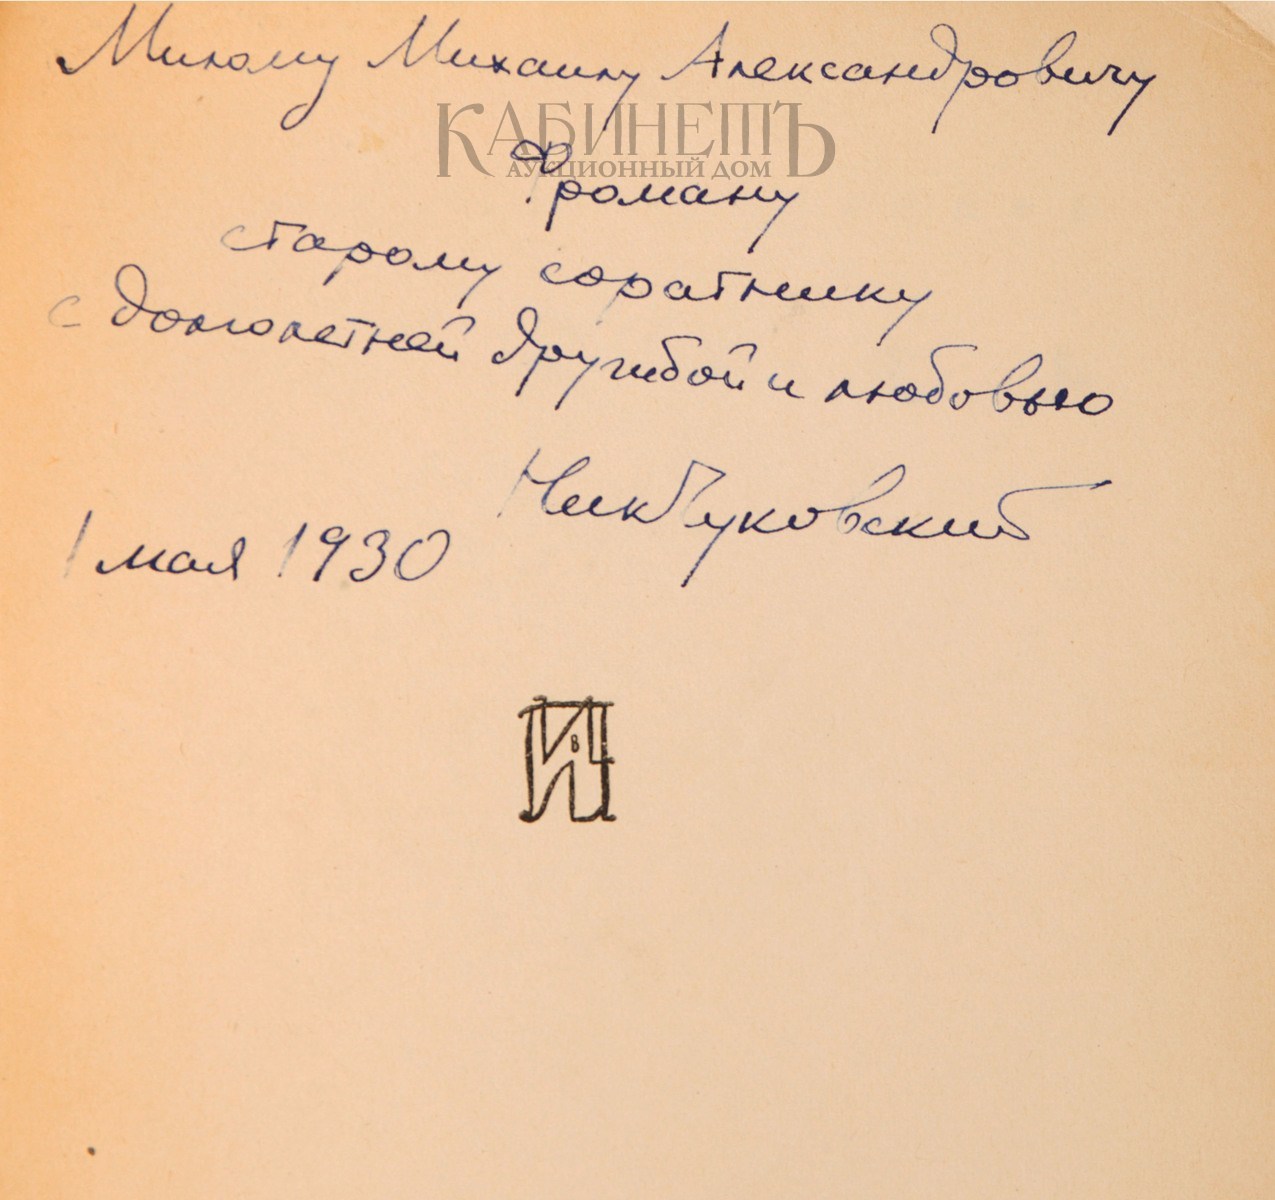 Милому Михаилу Александровичу
КАБИНЕТЪ
АУКЦИОННЫЙ ДОМ
Фроману
старому соратнику
с долголетней дружбой и любовью
Ник Чуковский
1 мая 1930